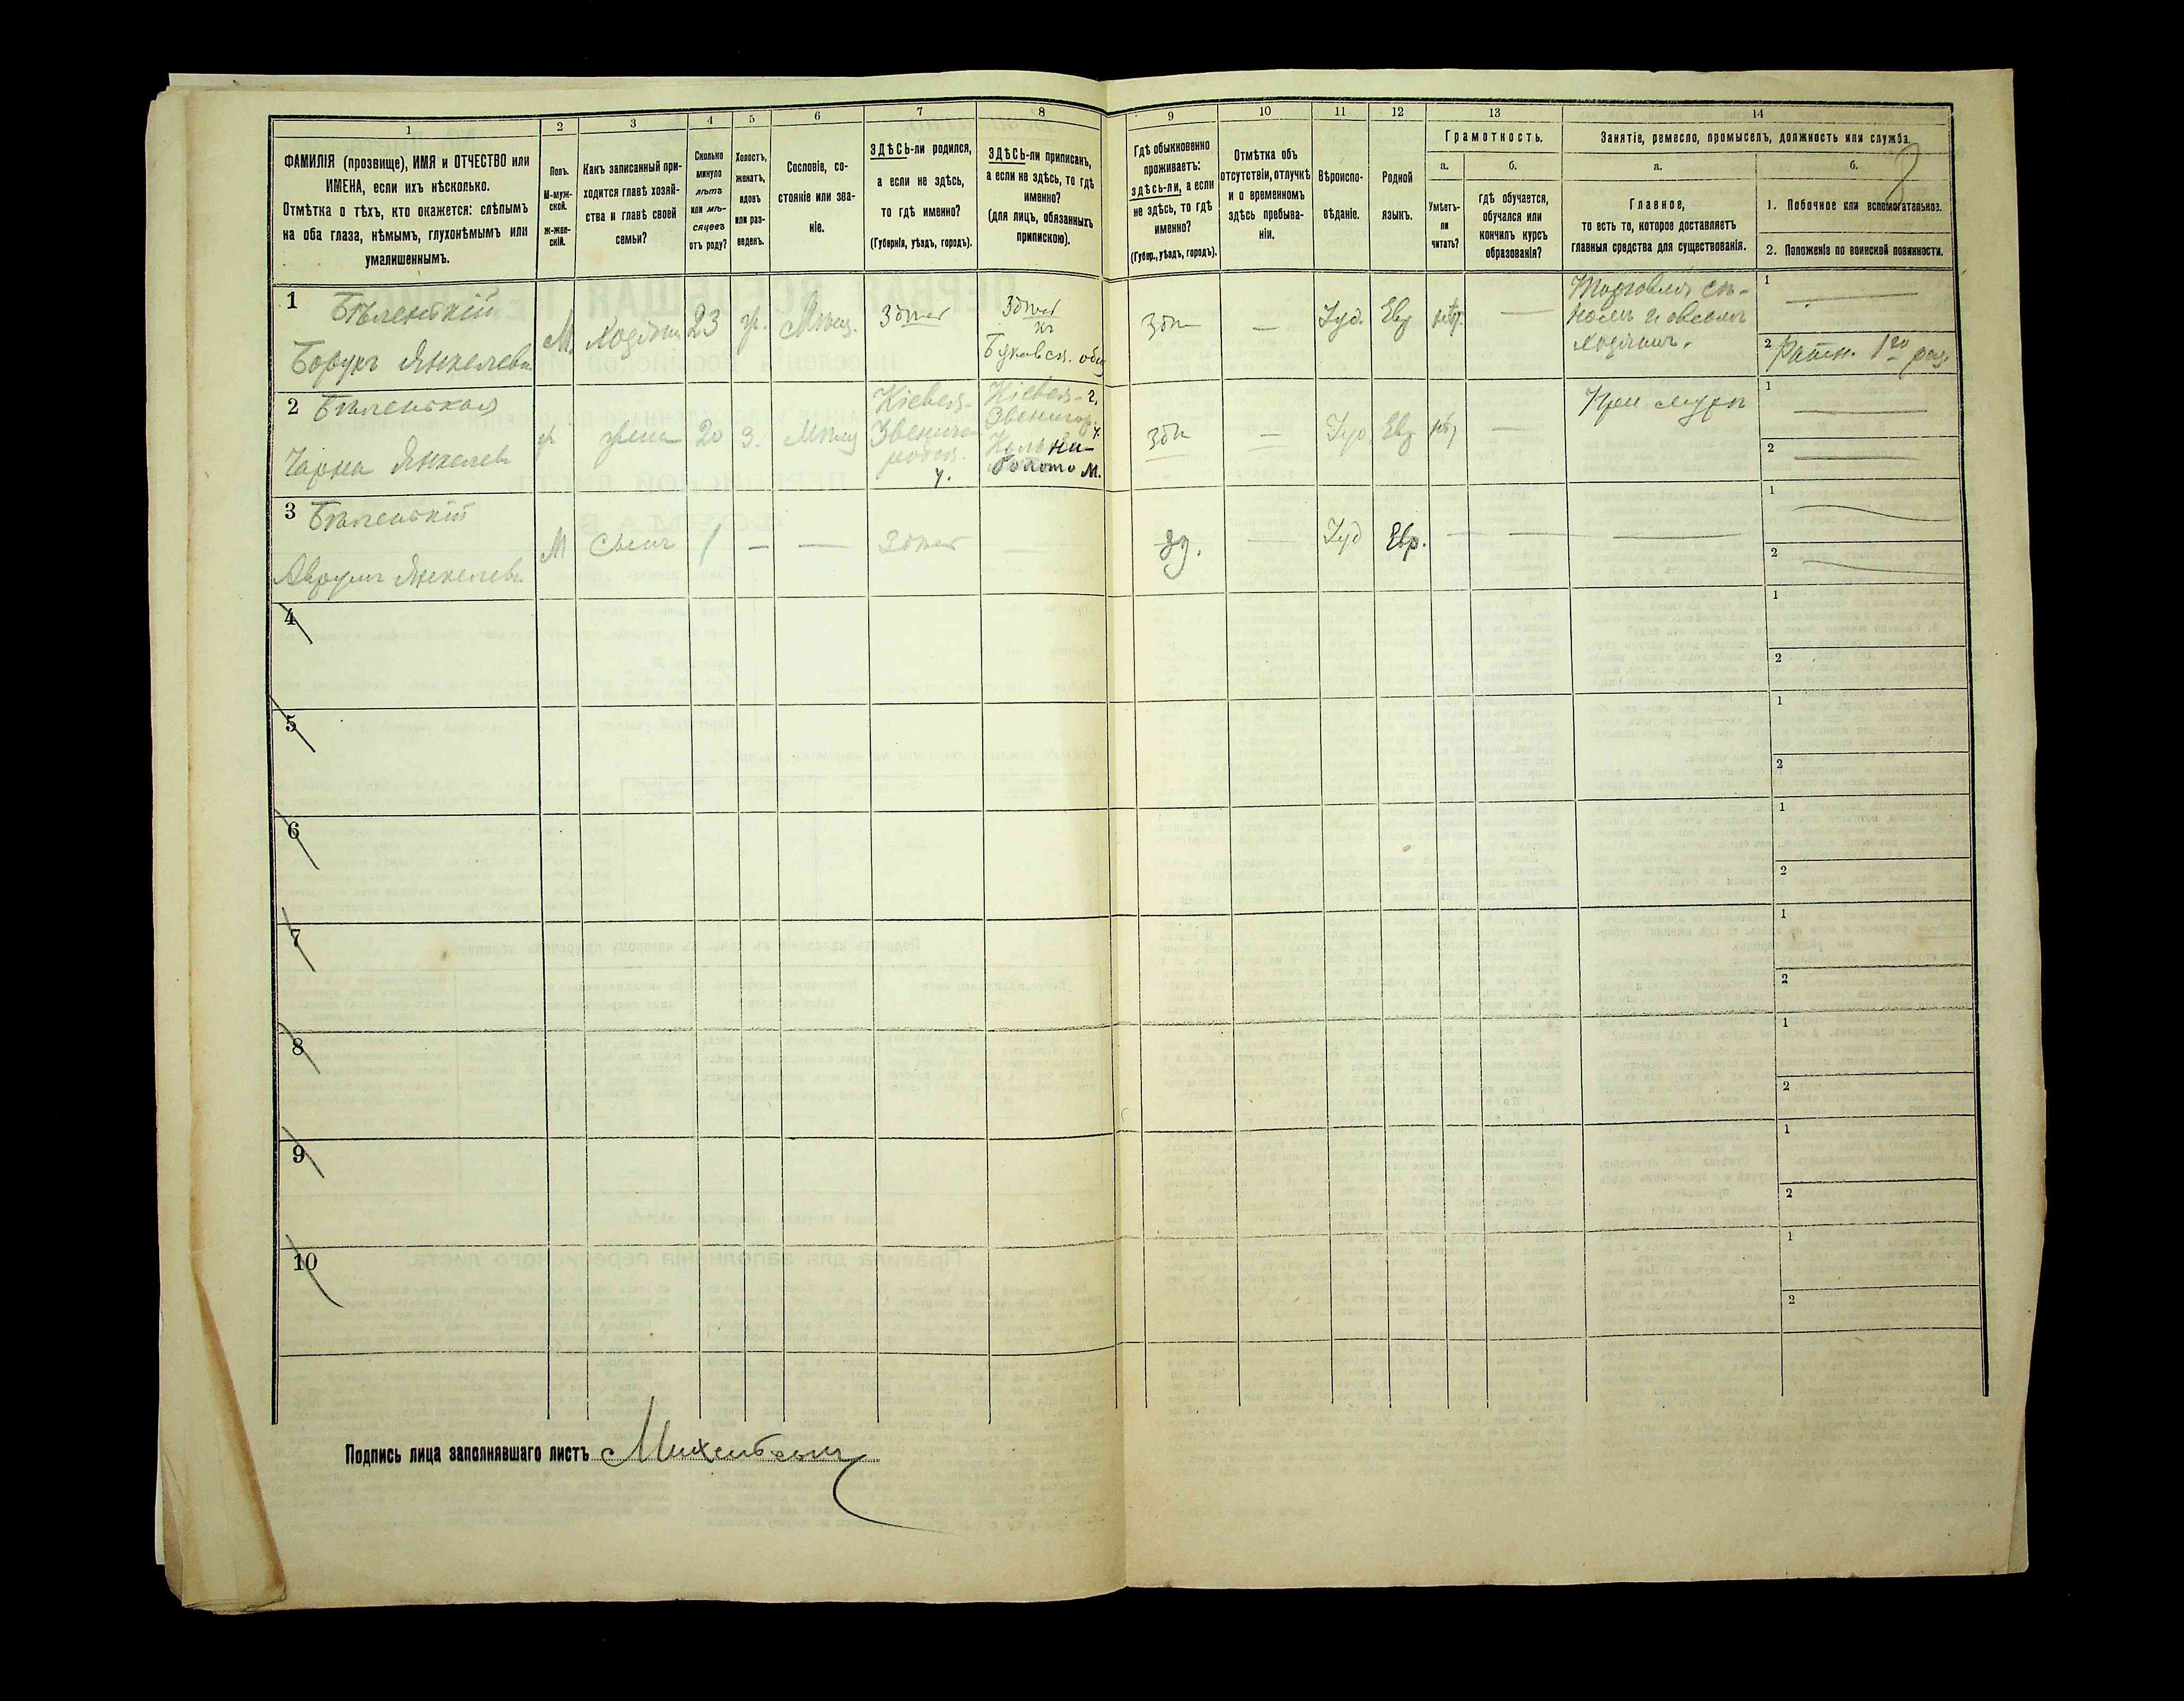 1
2
3
4
5
6
7
8
9
10
11
12
13
14
ФАМИЛІЯ (прозвище), ИМЯ и ОТЧЕСТВО или
ИМЕНА, если ихъ нѣсколько.
Отмѣтка о тѣхъ, кто окажется: слѣпымъ
на оба глаза, нѣмымъ, глухонѣмымъ или
умалишеннымъ.
Полъ.
М-муж-
ской.
Ж-жен-
скій.
Какъ записанный при-
ходится главѣ хозяй-
ства и главѣ своей
семьи?
Сколько
минуло
лѣтъ
или мѣ-
сяцевъ
отъ роду?
Холостъ,
женатъ,
вдовъ
или раз-
веденъ.
Сословіе, со-
стояніе или зва-
ніе.
ЗДѢСЬ-ли родился,
а если не здѣсь,
то гдѣ именно?
(Губернія, уѣздъ, городъ).
ЗДѢСЬ-ли приписанъ,
а если не здѣсь, то гдѣ
именно?
(для лицъ, обязанныхъ
припискою).
Гдѣ обыкновенно
проживаетъ:
здѣсь-ли, а если
не здѣсь, то гдѣ
именно?
(Губер., уѣздъ, городъ).
Отмѣтка объ
отсутствіи, отлучкѣ
и о временномъ
здѣсь пребыва-
ніи.
Вѣроиспо-
вѣданіе.
Родной
языкъ.
Грамотность.
а.
Умѣетъ-
ли
читать?
б.
гдѣ обучается,
обучался или
кончилъ курсъ
образованія?
Занятіе, ремесло, промыселъ, должность или служба.
а.
Главное,
то есть то, которое доставляетъ
главныя средства для существованія.
б.
1. Побочное или вспомогательное.
2. Положеніе по воинской повинности.
1 Бѣленькій
Борухъ Янкелевъ
М. хозяинъ 23 ж. Мѣщ. здѣсь
здѣсь
Буковск. общ
здѣ — Іуд. Евр —
Торговля сѣ-
номъ и овсомъ
хозяинъ.
1 —
2 Ратн. 1го разр.
2 Бѣленькая
Чарна Янкелев
ж жена 20 З. Мѣщ
Кіевск.
Звениго-
родск.
у.
Кіевск. г.
Звенигор.
у.
Кальни-
болото м.
здѣ — Іуд Евр —
При мужѣ
1 —
2 —
3 Бѣленькій
Аврумъ Янкелевъ
М Сынъ 1 — — здѣсь — зд. — Іуд Евр. — — —
1 —
2 —
4
1
2
5
1
2
6
1
2
7
1
2
8
1
2
9
1
2
10
1
2
Подпись лица заполнявшаго листъ